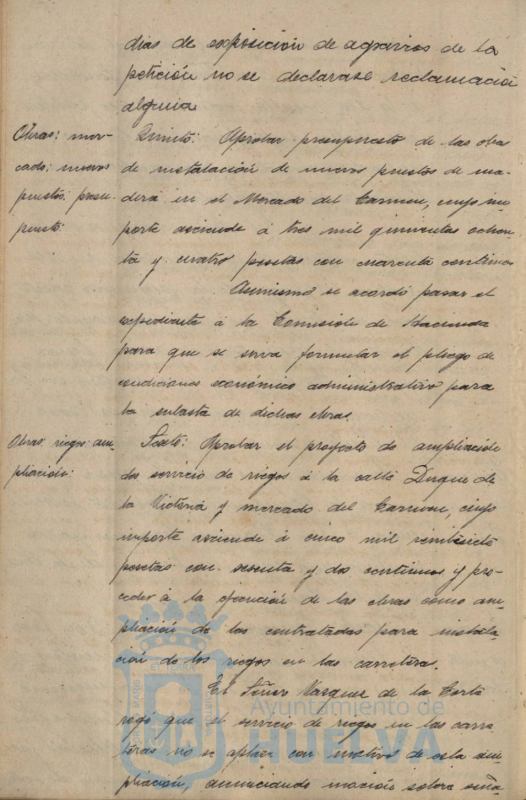 dias de exposición de agravios de la
petición no se declarase reclamación
alguna
Obras: mer-
cado; nuevos
puestos presu-
puesto:
Quinto: Aprobar presupuesto de las obras
de instalación de nuevos puestos de ma-
dera en el Mercado del Carmen, cuyo im-
porte asciende á tres mil quinientas ochen-
ta y cuatro pesetas con cuarenta centimos
Asimismo se acordó pasar el
expediente á la Comisión de Hacienda
para que se sirva formular el pliego de
condiciones económico administrativo para
la subasta de dichas obras.
Obras: riegos: am-
pliación:
Sexto: Aprobar el proyecto de ampliación
del servicio de riegos á la calle Duque de
la Victoria y mercado del Carmen, cuyo
importe asciende á cinco mil veintisiete
pesetas con sesenta y dos centimos y pro-
ceder á la ejecución de las obras como am-
pliación de las contratadas para instala-
ción de los riegos en las carreteras.
El Señor Vazquez de la Corte
rogó que el servicio de riegos en las carre-
teras no se aplace con motivo de esta am-
pliación, anunciando moción sobre
Ayuntamiento de
HUELVA